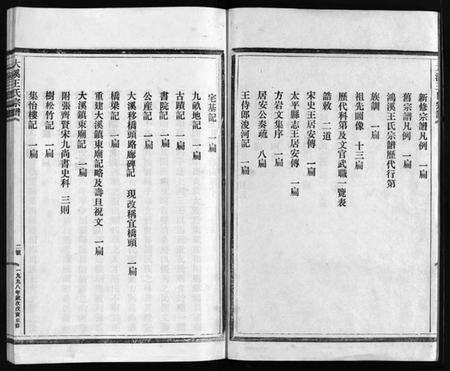 新修宗譜凡例 一扁
舊宗譜凡例 一扁
鴻溪王氏宗譜歷代行第
族訓 一扁
祖先圖像 十三扁
歷代科第及文官武職一覽表
誥敕 二道
宋史王居安傳 一扁
太平縣志王居安傳 一扁
方岩文集序 一扁
居安公奏疏 八扁
王侍郎浚河記 一扁
宅基記 一扁
九畝地記 一扁
古蹟記 一扁
書院記 一扁
公產記 一扁
大溪移橋頭路廊碑記 現改稱宜橋頭 一扁
橋梁記 一扁
重建大溪鎮東廟記略及壽旦祝文 一扁
大溪鎮東廟記 一扁
附張齊賢宋九尚書史科 三則
樹松竹記 一扁
集怡樓記 一扁
大溪王氏宗譜
二號
一九九八年歲次戊寅重修